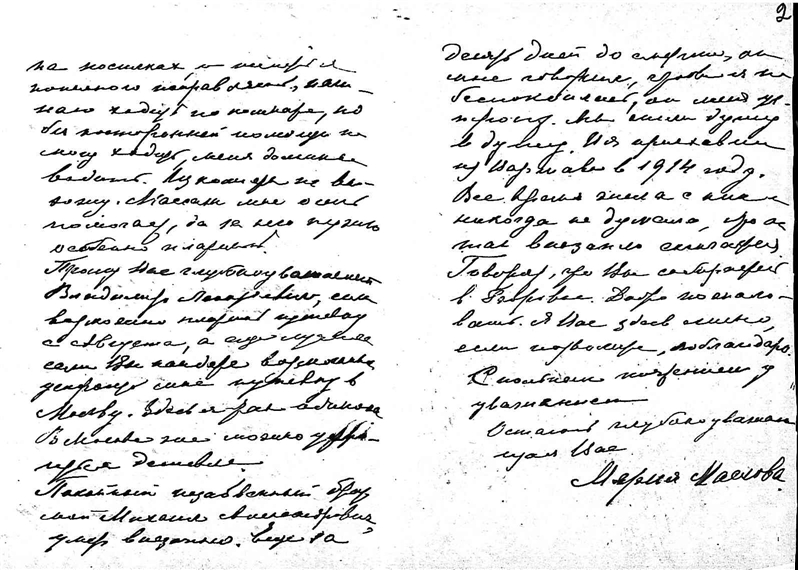 2
на носилках, и теперь я
понемногу поправляюсь, начи-
наю ходить по комнате, но
без посторонней помощи не
могу ходить, меня должны
водить. Из комнаты не вы-
хожу. Массаж мне очень
помогает, да за него нужно
особенно платить.
Прошу Вас глубокоуважаемый
Владимир, если
возможно платить путевку
с Августа, а еще лучше
если Вы найдете возможным
устроить мне путевку в
Москву. Здесь я так одинока
В Москве же можно устро-
иться дешевле.
незабвенный брат
мой Михаил Александрович
умер внезапно. Еще за
десять дней до смерти, он
мне говорил, чтобы я не
беспокоилась, он меня
Мы жили душа
в душу. И я приехала
из Варшавы в 1914 году.
Все время жила с ним и
никогда не думала, что он
так внезапно скончается.
Говорят, что Вы собираетесь
в Добро пожало-
вать. Я Вас здесь лично,
если позволите, поблагодарю.
С полным почтением и
уважением
Остаюсь глубоко уважаю-
щая Вас
Мария Маслова